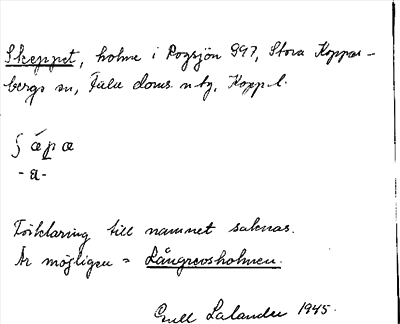 Skeppet, holme i Rogsjön 997, Stora Koppar-
bergs sn, Falu doms. n by, Kopp. l.
-a-
Förklaring till namnet saknas.
Är möjligen = Långrevsholmen.
Gull Lalander 1945.